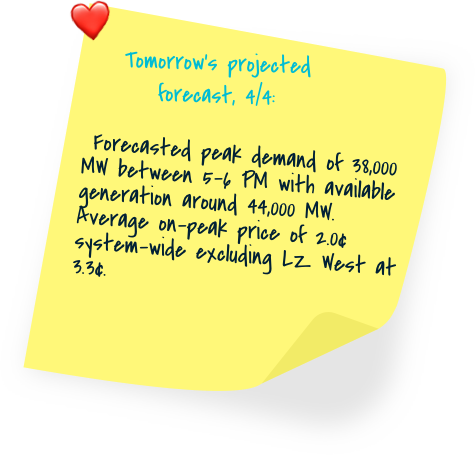 Tomorrow's projected
forecast, 4/4:
Forecasted peak demand of 38,000
MW between 5-6 PM with available
generation around 44,000 MW.
Average on-peak price of 2.0¢
system-wide excluding LZ West at
3.3¢.